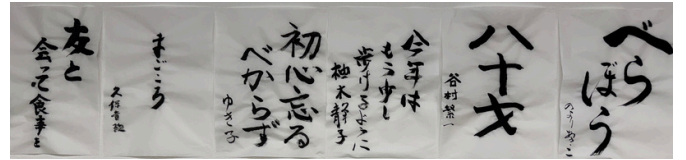 べら
ぼう
八十才
谷村繁一
今年は
もう少し
歩けるように
柚木静子
初心忘る
べからず
ゆき子
まごころ
友と
会って食事を